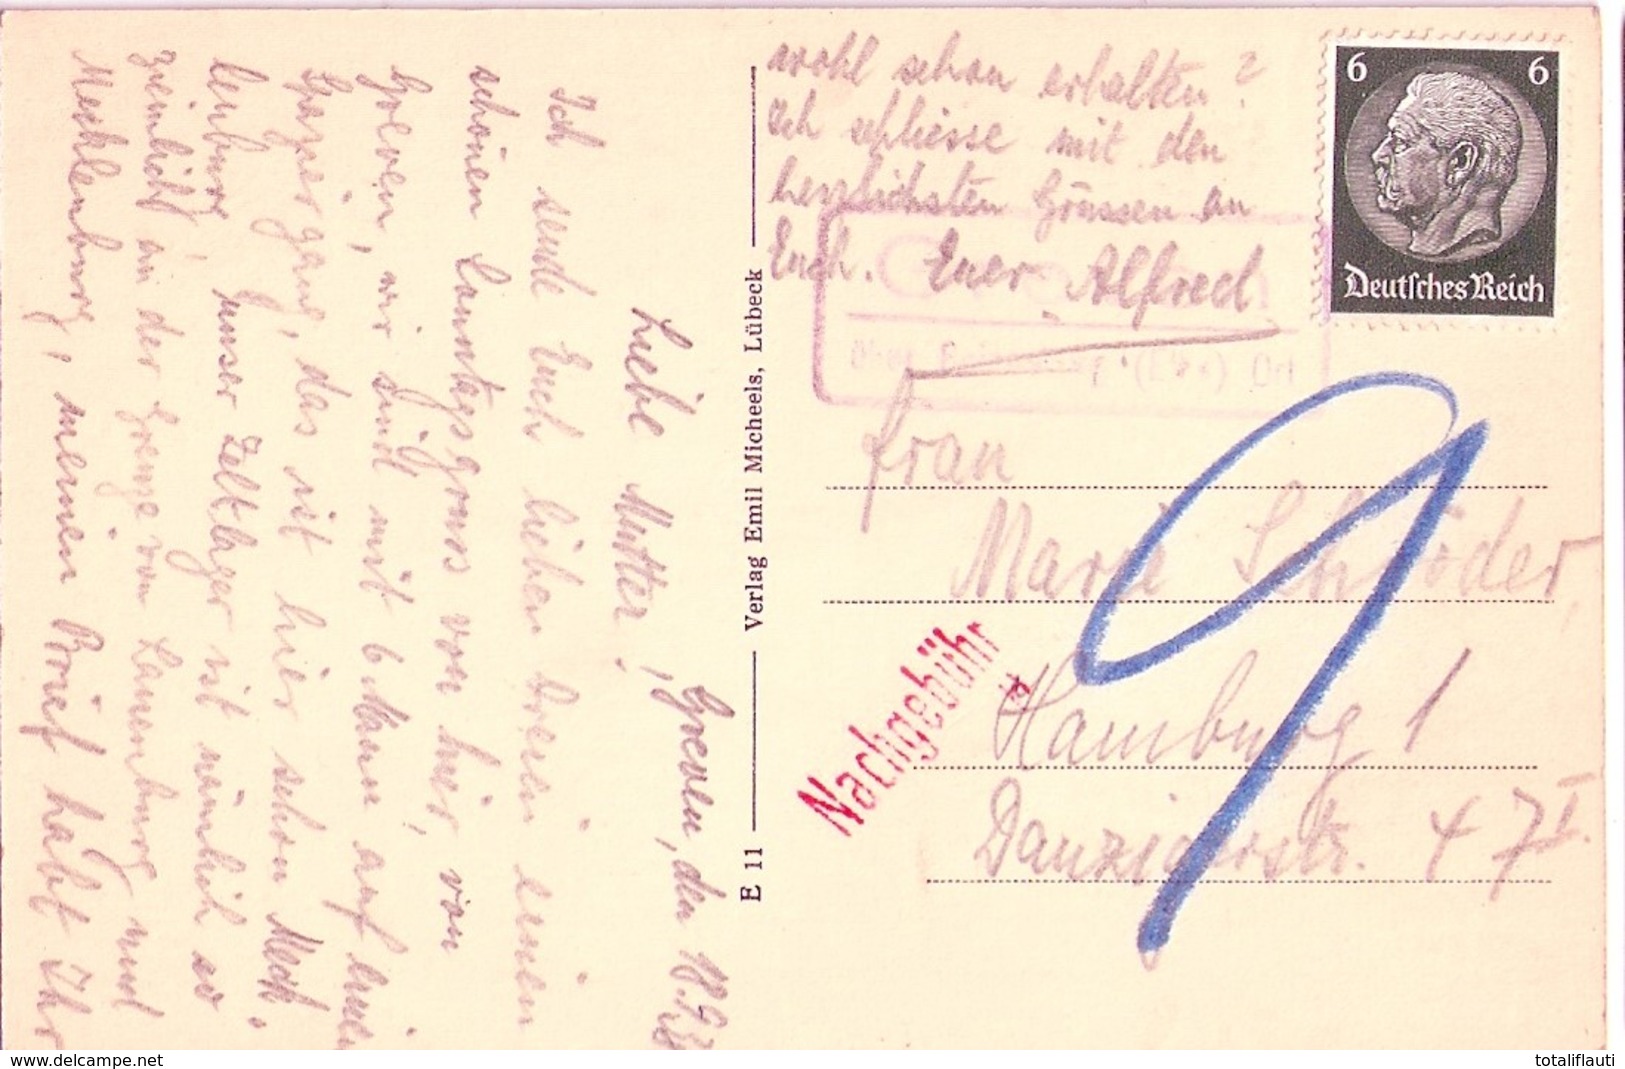 Greven, den 18.9.38
Liebe Mutter!
Ich sende Euch lieben Dreien einen
schönen Sonntagsgruss von hier, von
Greven, wir sind mit 6 Mann auf einem
Spaziergang, das ist hier schon Meck-
lenburg, unser Zeltlager ist nämlich so
ziemlich an der Grenze von Lauenburg und
Mecklenburg, meinen Brief habt Ihr
wohl schon erhalten?
Ich schliesse mit den
herzlichsten Grüssen an
Euch. Euer Alfred
Verlag Emil Micheels, Lübeck
E 11
6 6
Deutsches Reich
über (Elbe) Ort
Frau
Marie Schröder,
Hamburg 1
Danzigerstr. 47 I.
Nachgebühr
9
www.delcampe.net
totaliflauti